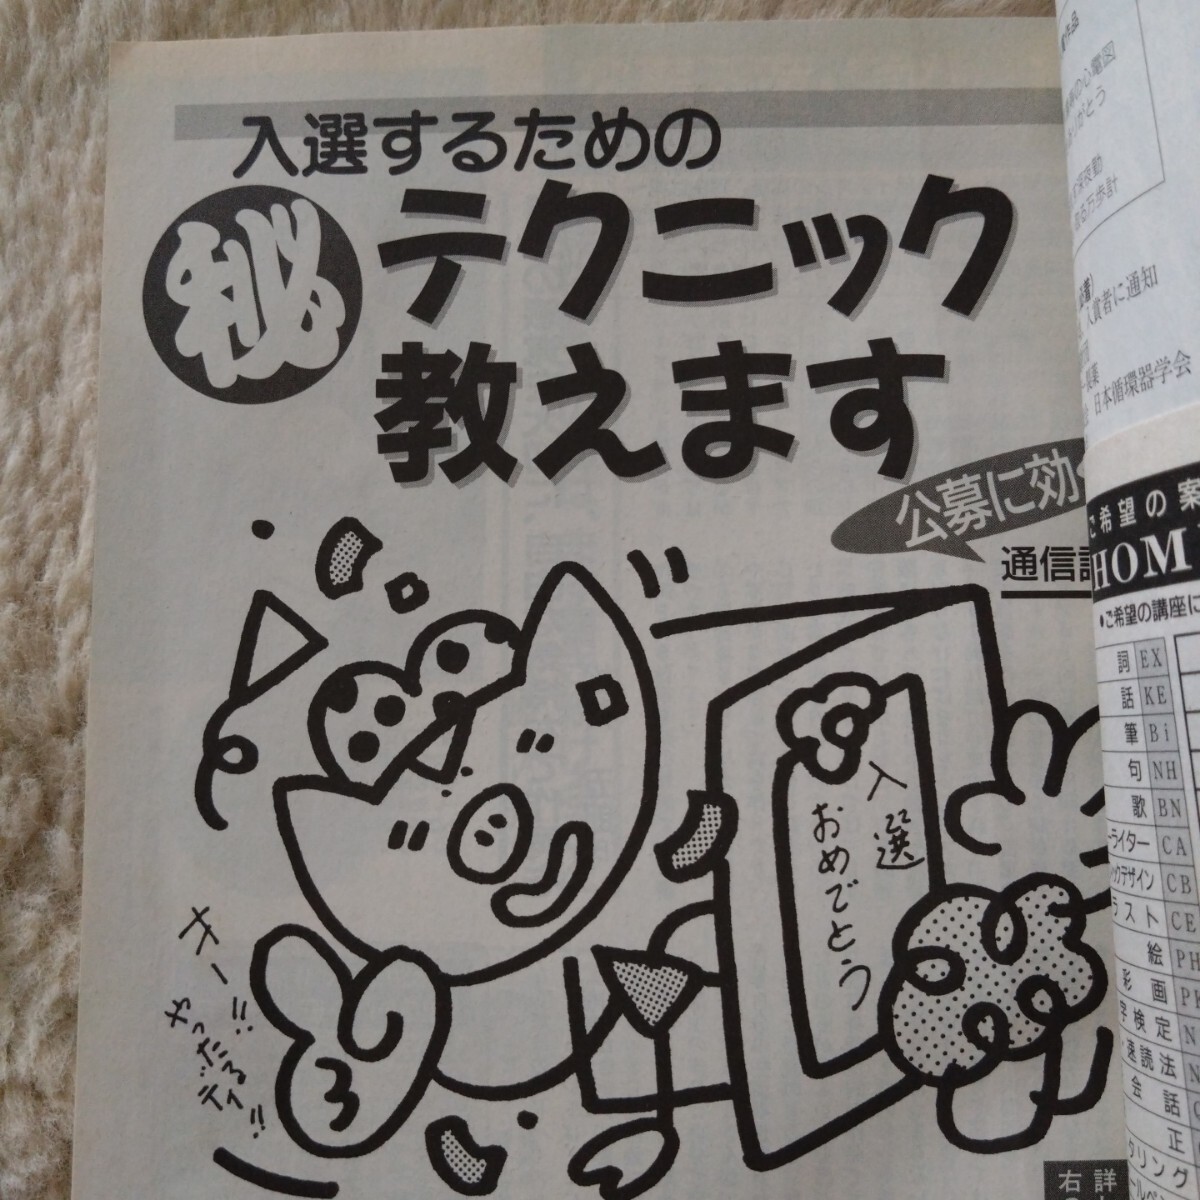 入選するための
㊙テクニック
教えます
公募に効
通信
入選
おめでとう
オー!!
やったるデイ!!
右詳
作品
の心電図
がとう
夜勤
る万歩計
入賞者に通知
日本循環器学会
ご希望の案
HOM
●ご希望の講座に
詞 EX
話 KE
筆 Bi
句 NH
歌 BN
ーライター CA
ックデザイン CB
ラスト CE
絵 PH
彩画
字検定 N
速読法 N
会話
正
タリング